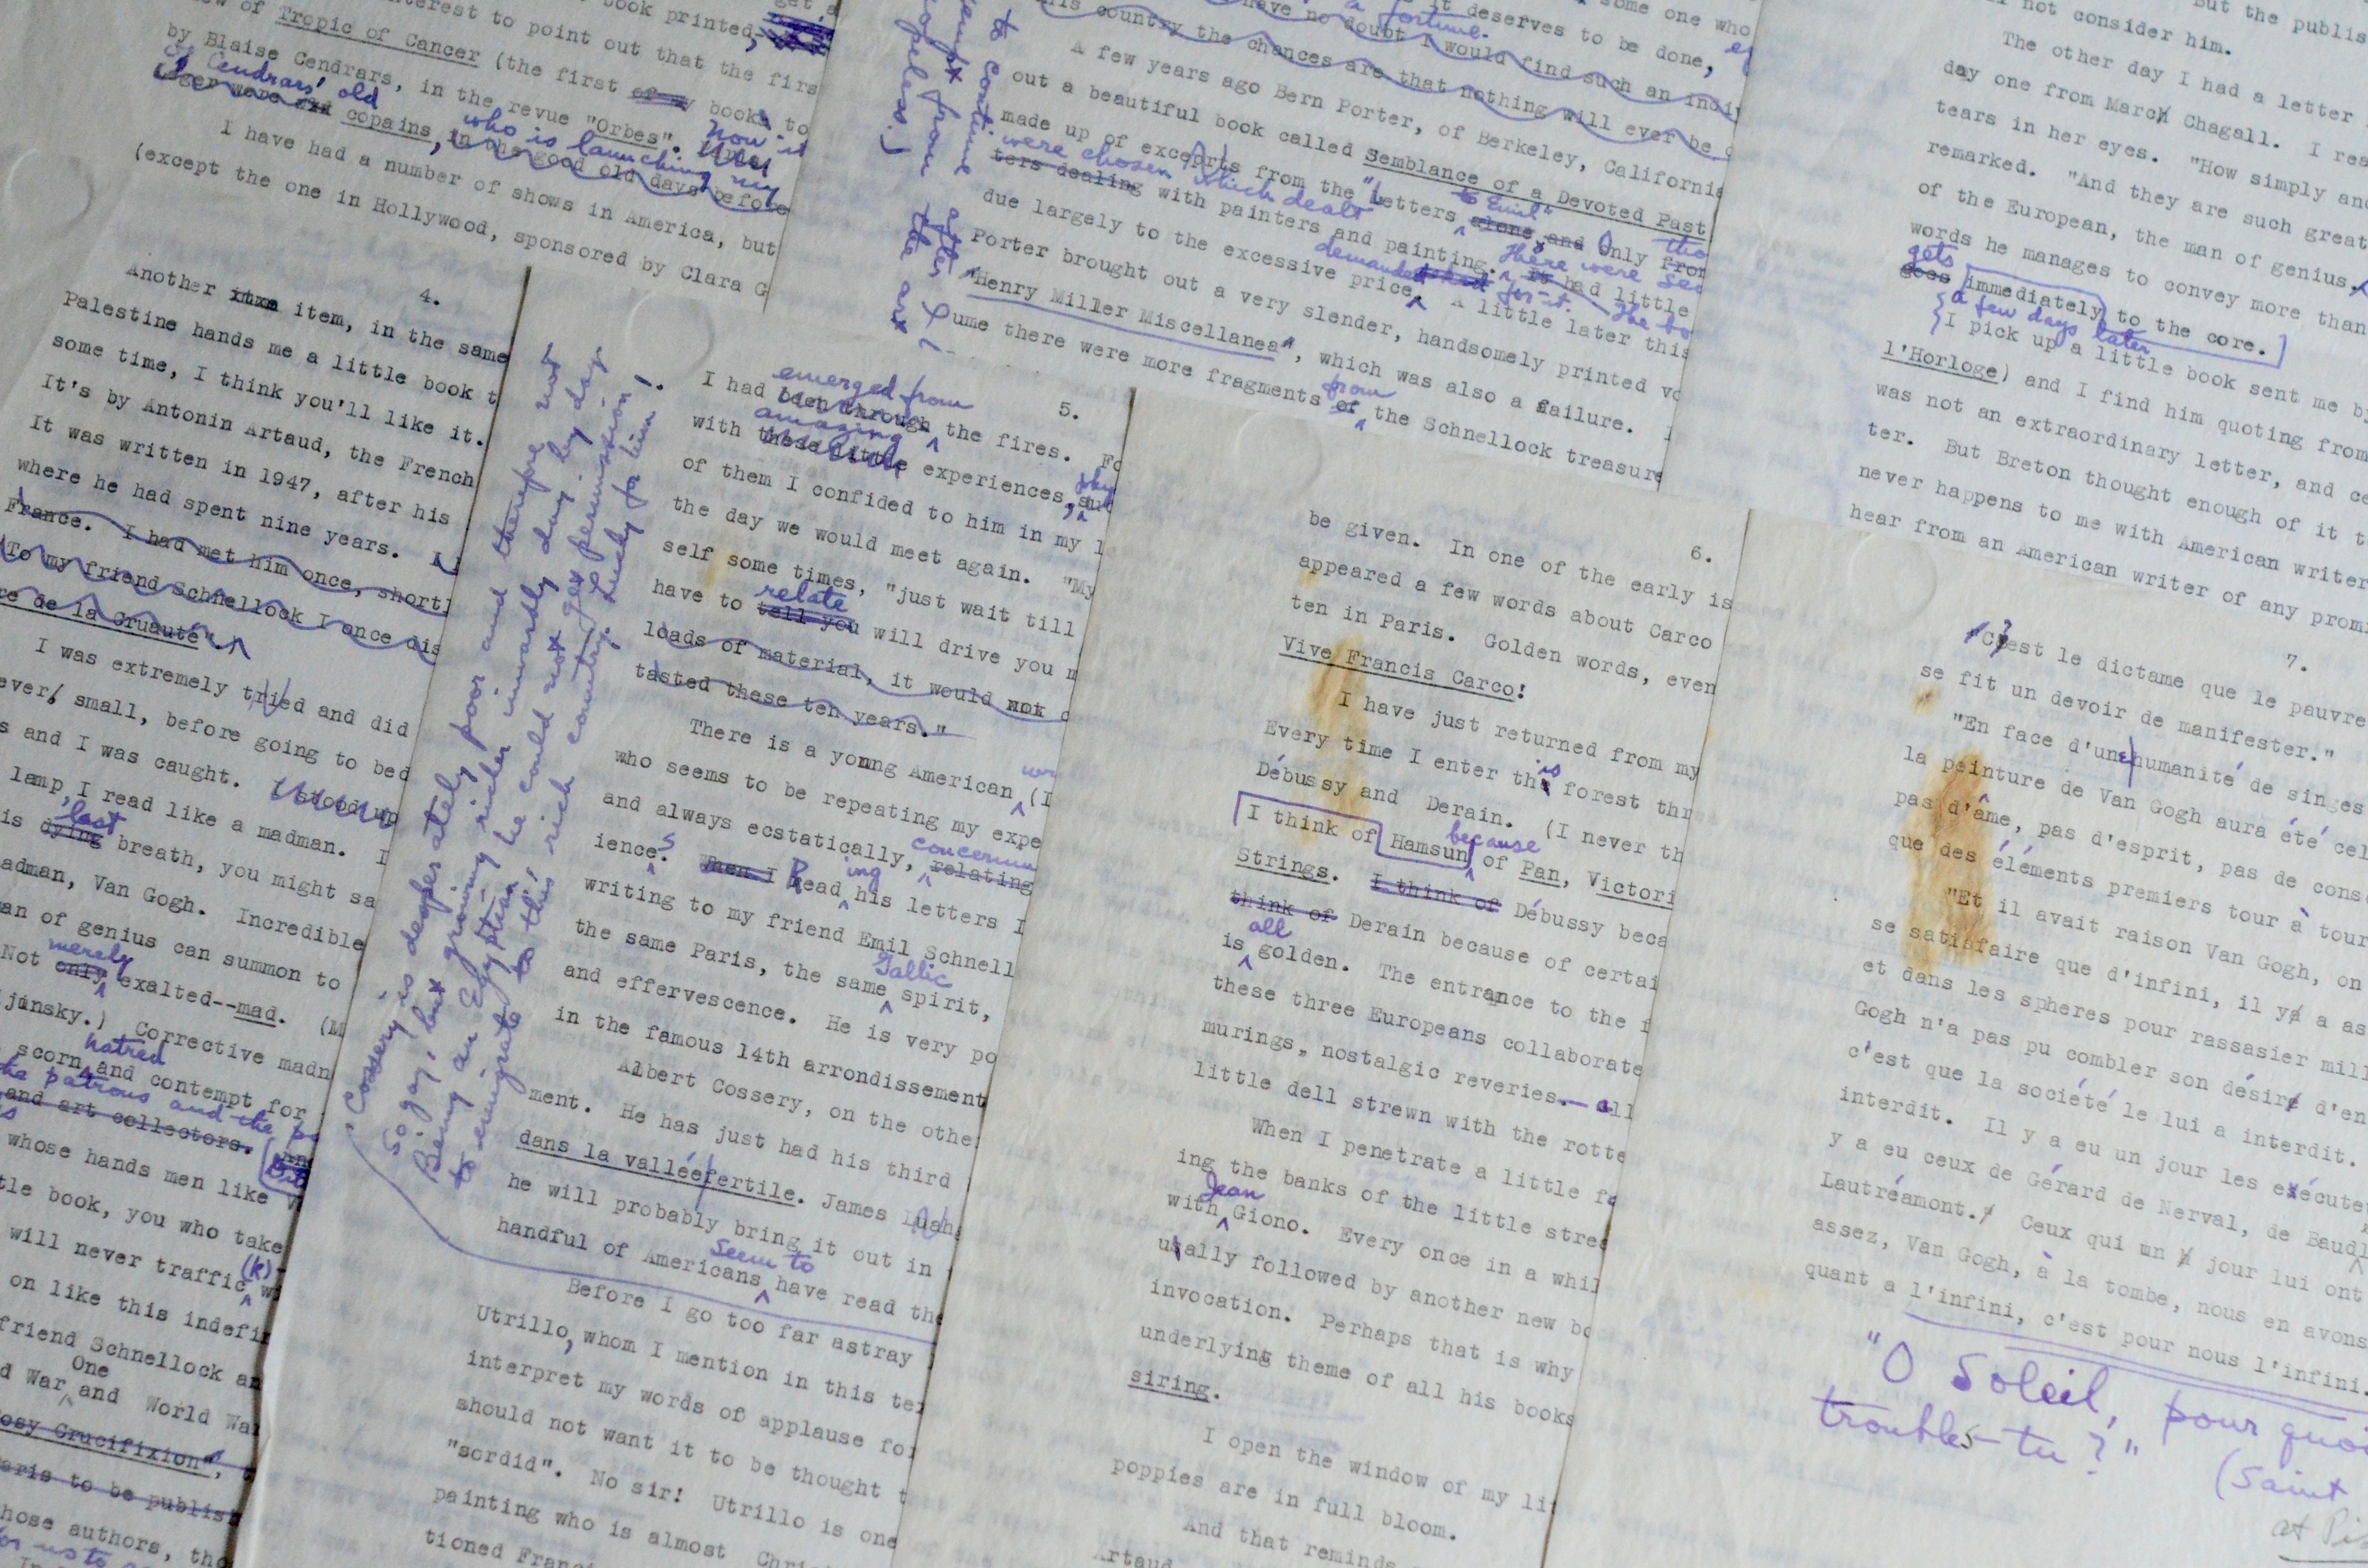 book printed,
interest to point out that the firs
of Tropic of Cancer (the first of my books to
by Blaise Cendrars, in the revue "Orbes". Now it
of Cendrars' old
copains, in the good old days before
who is launching my
I have had a number of shows in America, but
(except the one in Hollywood, sponsored by Clara G
4.
Another item, in the same
Palestine hands me a little book t
some time, I think you'll like it.
It's by Antonin Artaud, the French
It was written in 1947, after his
where he had spent nine years.
France. I had met him once, shortl
To my friend Schnellock I once dis
re de la Cruauté")
I was extremely tried and did
ever, small, before going to bed
s and I was caught. stood up
lamp, I read like a madman. I
last
is dying breath, you might sa
adman, Van Gogh. Incredible
an of genius can summon to
merely
Not only exalted--mad. (M
jinsky.) Corrective madn
hatred
scorn and contempt for
the patrons and the
and art collectors.
whose hands men like V
tle book, you who take
(k)
will never traffic w
on like this indefin
friend Schnellock an
One
d War and World War
osy Crucifixion",
aris to be publish
hose authors, tho
for us to
Cossery is desperately poor and therefore not
so gay, but growing richer inwardly day by day.
Being an Egyptian he could not get permission
to emigrate to this rich country. Lucky for him!
5.
emerged from
I had been through the fires. Fo
amazing
with these little experiences,
of them I confided to him in my l
the day we would meet again. "My
self some times, "just wait till
relate
have to tell you will drive you m
loads of material, it would not
tasted these ten years."
There is a yonng American (I
who seems to be repeating my expe
and always ecstatically, relating
concerning
iences. When I Reading his letters I
writing to my friend Emil Schnell
the same Paris, the same Gallic spirit,
and effervescence. He is very po
in the famous 14th arrondissement
Albert Cossery, on the othe
ment. He has just had his third
dans la vallée fertile. James
he will probably bring it out in
seem to
handful of Americans have read the
Before I go too far astray
Utrillo, whom I mention in this te
interpret my words of applause for
should not want it to be thought t
"sordid". No sir! Utrillo is one
painting who is almost Chris
tioned Franci
to continue after
attempt from the
hopeless.)
some one who
a fortune. it deserves to be done,
have no doubt I would find such an indiv
this country the chances are that nothing will ever be d
A few years ago Bern Porter, of Berkeley, California
out a beautiful book called Semblance of a Devoted Past
made up of excerpts from the "Letters to Emil"
alone, and Only
were chosen which dealt
ters dealing with painters and painting. There were
had little
due largely to the excessive price demanded for it. The bo
A little later this
Porter brought out a very slender, handsomely printed vo
"Henry Miller Miscellanea", which was also a failure. I
ume there were more fragments from of the Schnellock treasure
6.
be given. In one of the early is
appeared a few words about Carco
ten in Paris. Golden words, even
Vive Francis Carco!
I have just returned from my
Every time I enter this forest thr
Débussy and Derain. (I never th
I think of Hamsun because of Pan, Victori
Strings. I think of Débussy beca
think of Derain because of certai
is all golden. The entrance to the f
these three Europeans collaborate
murings, nostalgic reveries -- all
little dell strewn with the rotte
When I penetrate a little fa
ing the banks of the little stream
with Jean Giono. Every once in a whil
usally followed by another new bo
invocation. Perhaps that is why
underlying theme of all his books
siring.
I open the window of my lit
poppies are in full bloom.
And that reminds
Artaud
But the publis
not consider him.
The other day I had a letter
day one from March Chagall. I rea
tears in her eyes. "How simply and
remarked. "And they are such great
of the European, the man of genius,
words he manages to convey more than
gets
goes immediately to the core.
a few days later
I pick up a little book sent me by
l'Horloge) and I find him quoting from
was not an extraordinary letter, and ce
ter. But Breton thought enough of it t
never happens to me with American writer
hear from an American writer of any promi
7.
"C'est le dictame que le pauvre
se fit un devoir de manifester."
"En face d'une humanité de singes
la peinture de Van Gogh aura été cel
pas d'âme, pas d'esprit, pas de consc
que des éléments premiers tour à tour
"Et il avait raison Van Gogh, on
se satisfaire que d'infini, il y a as
et dans les spheres pour rassasier mill
Gogh n'a pas pu combler son désir d'en
c'est que la société le lui a interdit.
interdit. Il y a eu un jour les exécute
y a eu ceux de Gérard de Nerval, de Baudl
Lautréamont. Ceux qui un jour lui ont
assez, Van Gogh, à la tombe, nous en avons
quant a l'infini, c'est pour nous l'infini.
"O Soleil, pourquoi
troubles-tu?"
(Saint
at Pis